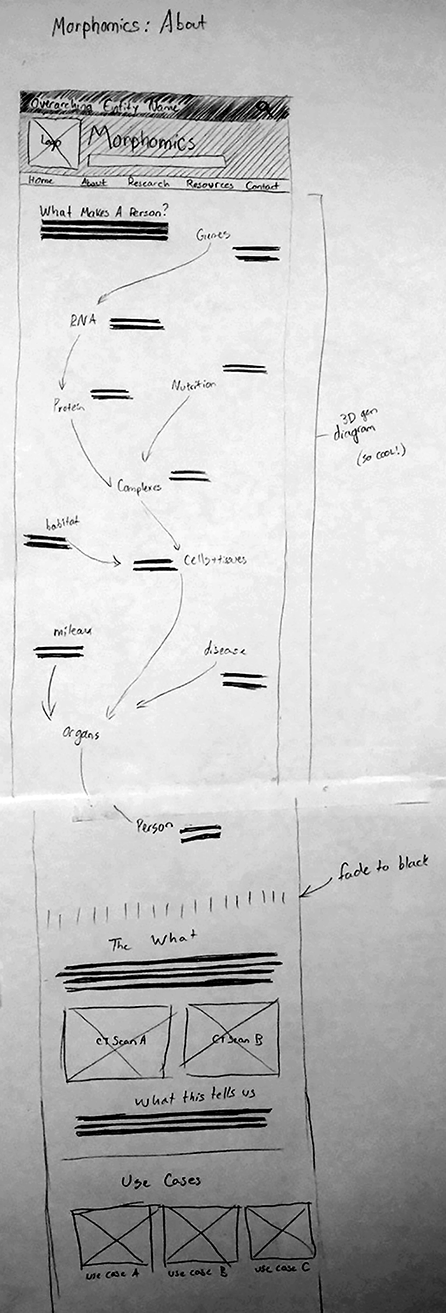 Morphomics: About
Overarching Entity Name
Logo
Morphomics
Home About Research Resources Contact
What Makes A Person?
Genes
RNA
Nutrition
Protein
3D gen
diagram
(so cool!)
Complexes
habitat
Cells+tissues
mileau
disease
Organs
Person
fade to black
The What
CT Scan A
CT Scan B
What this tells us
Use Cases
use case A
use case B
use case C